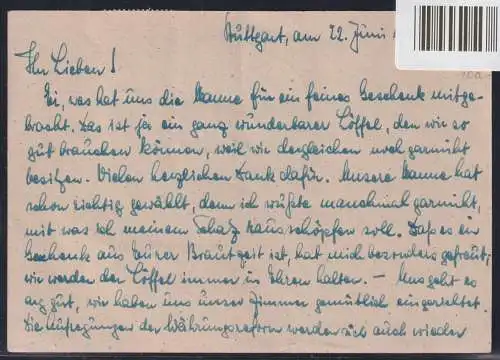 Stuttgart, am 22. Juni
Ihr Lieben!
Ei, was hat uns die Mamme für ein feines Geschenk mitge-
bracht. Das ist ja ein ganz wunderbarer Löffel, den wir so
gut brauchen können, weil wir dergleichen noch garnicht
besitzen. Vielen herzlichen Dank dafür. Unsere Mamme hat
schon richtig gewählt, denn ich wüßte manchmal garnicht,
mit was ich meinem Schatz rausschöpfen soll. Daß es ein
Geschenk aus Eurer Brautzeit ist, hat mich besonders gefreut;
wir werden den Löffel immer in Ehren halten. – Uns geht es
arg gut, wir haben uns unser Zimmer gemütlich eingerichtet.
Die Aufregungen der Währungsreform werden sich auch wieder